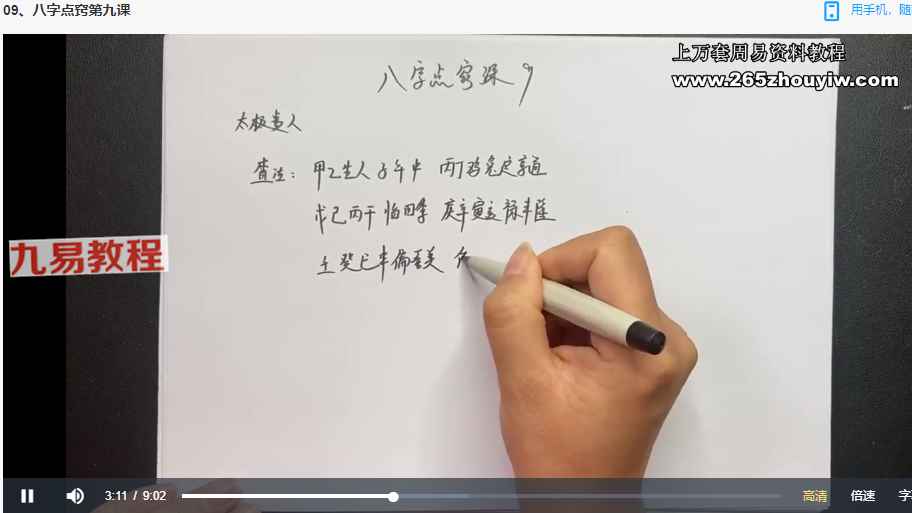 09、八字点窍第九课
用手机，随
上万套周易资料教程
www.265zhouyiw.com
八字点窍课9
太极贵人
查法：甲乙生人子午中 丙丁鸡兔定亨通
戊己两干临四季 庚辛寅亥禄丰隆
壬癸巳申偏喜美
九易教程
3:11 / 9:02
高清 倍速 字